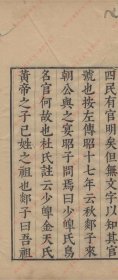 四民有官明矣但無文字以知其官
號也按左傳昭十七年云秋郯子來
朝公與之宴昭子問焉曰少皥氏鳥
名官何故也杜氏註云少皥金天氏
黃帝之子己姓之祖也郯子曰吾祖